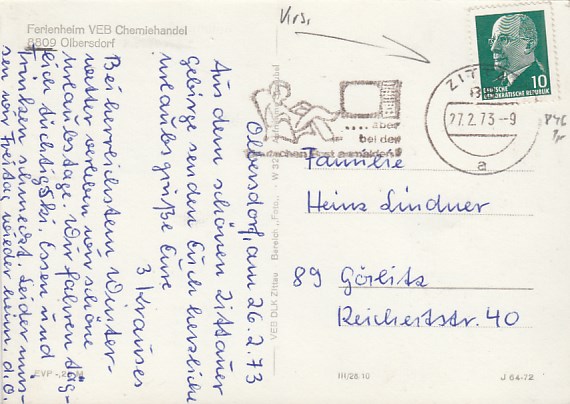 Ferienheim VEB Chemiehandel
8809 Olbersdorf
Olbersdorf, am 26.2.73
Aus dem schönen Zittauer
Gebirge senden Euch herzliche
Urlaubsgrüße Eure
3 Krauses
Bei herrlichstem Winter-
wetter verleben wir schöne
Urlaubstage. Wir fahren täg-
lich tüchtig Ski. Essen und
Trinken schmeckt. Leider müs-
sen wir Freitag wieder heim. d.O.
EVP
VEB DLK Zittau Bereich „Foto"
Krs.
.... aber
bei der
Deutschen Post anmelden!
ZITTAU
27.2.73-9
a
10
DEUTSCHE
DEMOKRATISCHE REPUBLIK
Familie
Heinz Lindner
89 Görlitz
Reichertstr. 40
III/26.10
J 64-72